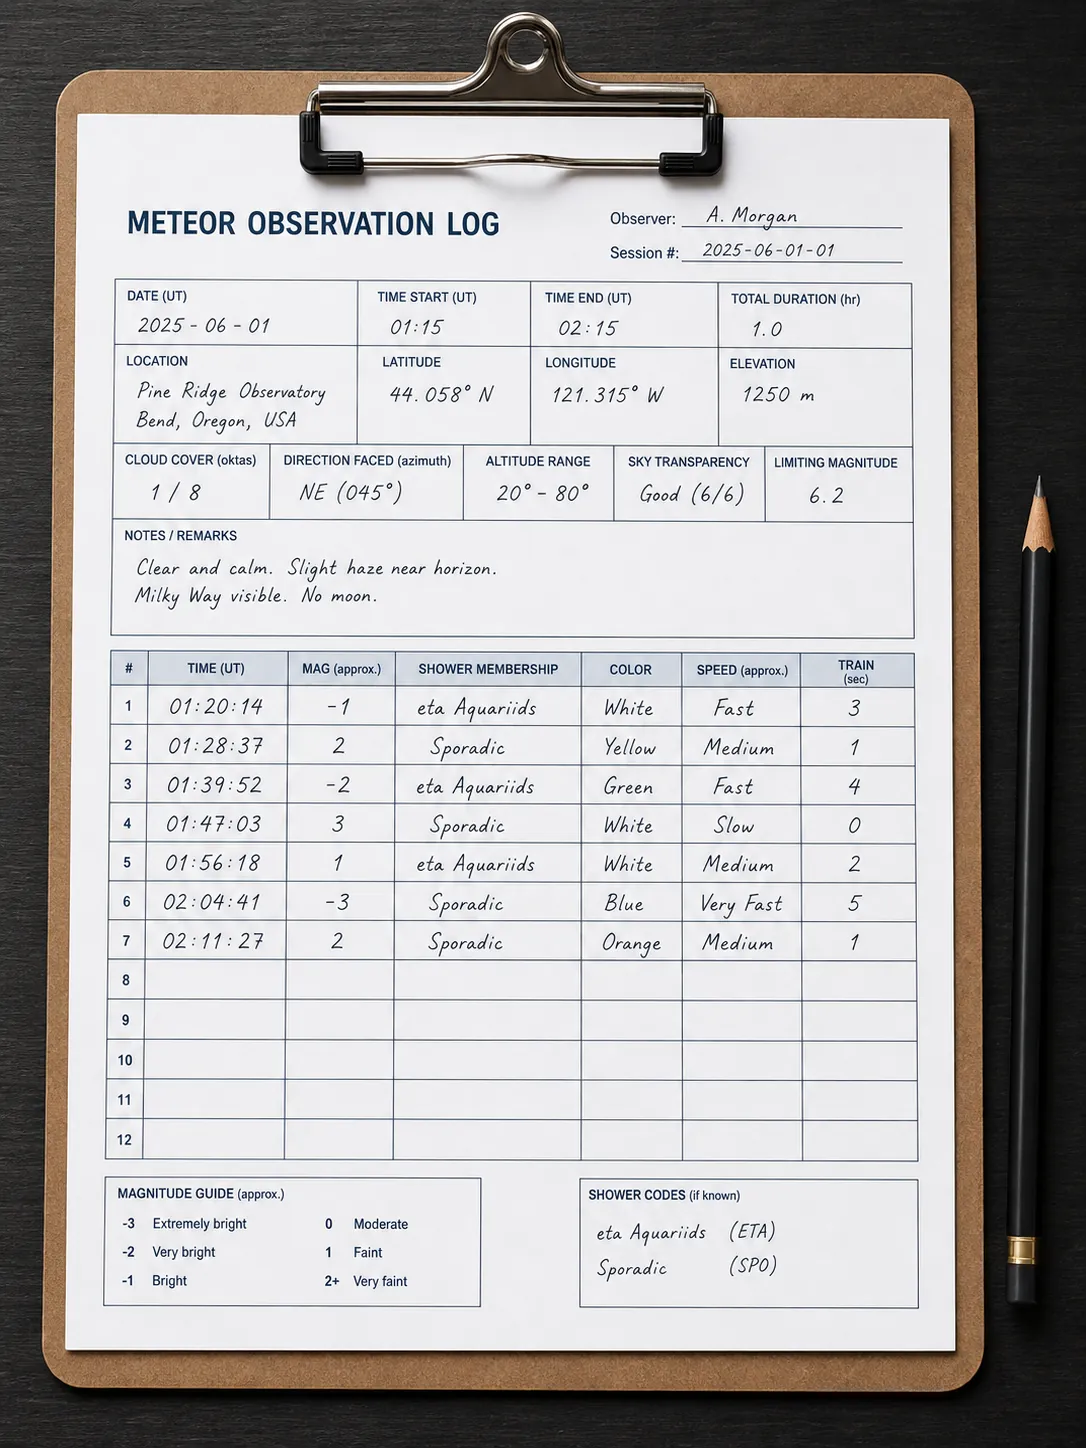 METEOR OBSERVATION LOG
Observer: A. Morgan
Session #: 2025-06-01-01
DATE (UT) TIME START (UT) TIME END (UT) TOTAL DURATION (hr)
2025 - 06 - 01 01:15 02:15 1.0
LOCATION LATITUDE LONGITUDE ELEVATION
Pine Ridge Observatory 44.058° N 121.315° W 1250 m
Bend, Oregon, USA
CLOUD COVER (oktas) DIRECTION FACED (azimuth) ALTITUDE RANGE SKY TRANSPARENCY LIMITING MAGNITUDE
1 / 8 NE (045°) 20° - 80° Good (6/6) 6.2
NOTES / REMARKS
Clear and calm. Slight haze near horizon.
Milky Way visible. No moon.
# TIME (UT) MAG (approx.) SHOWER MEMBERSHIP COLOR SPEED (approx.) TRAIN (sec)
1 01:20:14 -1 eta Aquariids White Fast 3
2 01:28:37 2 Sporadic Yellow Medium 1
3 01:39:52 -2 eta Aquariids Green Fast 4
4 01:47:03 3 Sporadic White Slow 0
5 01:56:18 1 eta Aquariids White Medium 2
6 02:04:41 -3 Sporadic Blue Very Fast 5
7 02:11:27 2 Sporadic Orange Medium 1
8
9
10
11
12
MAGNITUDE GUIDE (approx.)
-3 Extremely bright 0 Moderate
-2 Very bright 1 Faint
-1 Bright 2+ Very faint
SHOWER CODES (if known)
eta Aquariids (ETA)
Sporadic (SPO)